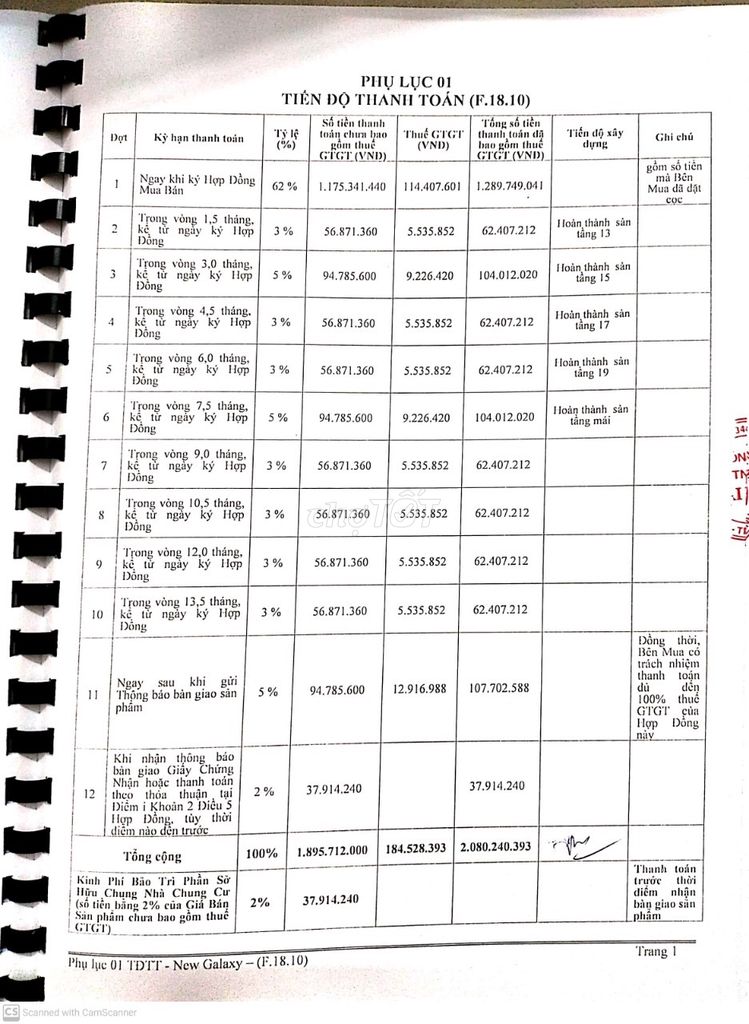 PHỤ LỤC 01
TIẾN ĐỘ THANH TOÁN (F.18.10)
Đợt Kỳ hạn thanh toán Tỷ lệ (%) Số tiền thanh toán chưa bao gồm thuế GTGT (VNĐ) Thuế GTGT (VNĐ) Tổng số tiền thanh toán đã bao gồm thuế GTGT (VNĐ) Tiến độ xây dựng Ghi chú
1 Ngay khi ký Hợp Đồng Mua Bán 62 % 1.175.341.440 114.407.601 1.289.749.041 gồm số tiền mà Bên Mua đã đặt cọc
2 Trong vòng 1,5 tháng, kể từ ngày ký Hợp Đồng 3 % 56.871.360 5.535.852 62.407.212 Hoàn thành sàn tầng 13
3 Trong vòng 3,0 tháng, kể từ ngày ký Hợp Đồng 5 % 94.785.600 9.226.420 104.012.020 Hoàn thành sàn tầng 15
4 Trong vòng 4,5 tháng, kể từ ngày ký Hợp Đồng 3 % 56.871.360 5.535.852 62.407.212 Hoàn thành sàn tầng 17
5 Trong vòng 6,0 tháng, kể từ ngày ký Hợp Đồng 3 % 56.871.360 5.535.852 62.407.212 Hoàn thành sàn tầng 19
6 Trong vòng 7,5 tháng, kể từ ngày ký Hợp Đồng 5 % 94.785.600 9.226.420 104.012.020 Hoàn thành sàn tầng mái
7 Trong vòng 9,0 tháng, kể từ ngày ký Hợp Đồng 3 % 56.871.360 5.535.852 62.407.212
8 Trong vòng 10,5 tháng, kể từ ngày ký Hợp Đồng 3 % 56.871.360 5.535.852 62.407.212
chợTỐT
9 Trong vòng 12,0 tháng, kể từ ngày ký Hợp Đồng 3 % 56.871.360 5.535.852 62.407.212
10 Trong vòng 13,5 tháng, kể từ ngày ký Hợp Đồng 3 % 56.871.360 5.535.852 62.407.212
11 Ngay sau khi gửi Thông báo bàn giao sản phẩm 5 % 94.785.600 12.916.988 107.702.588 Đồng thời, Bên Mua có trách nhiệm thanh toán đủ đến 100% thuế GTGT của Hợp Đồng này
12 Khi nhận thông báo bàn giao Giấy Chứng Nhận hoặc thanh toán theo thỏa thuận tại Điểm i Khoản 2 Điều 5 Hợp Đồng, tùy thời điểm nào đến trước 2 % 37.914.240 37.914.240
Tổng cộng 100% 1.895.712.000 184.528.393 2.080.240.393
Kinh Phí Bảo Trì Phần Sở Hữu Chung Nhà Chung Cư (số tiền bằng 2% của Giá Bán Sản phẩm chưa bao gồm thuế GTGT) 2% 37.914.240 Thanh toán trước thời điểm nhận bàn giao sản phẩm
Phụ lục 01 TĐTT - New Galaxy – (F.18.10) Trang 1
CS Scanned with CamScanner